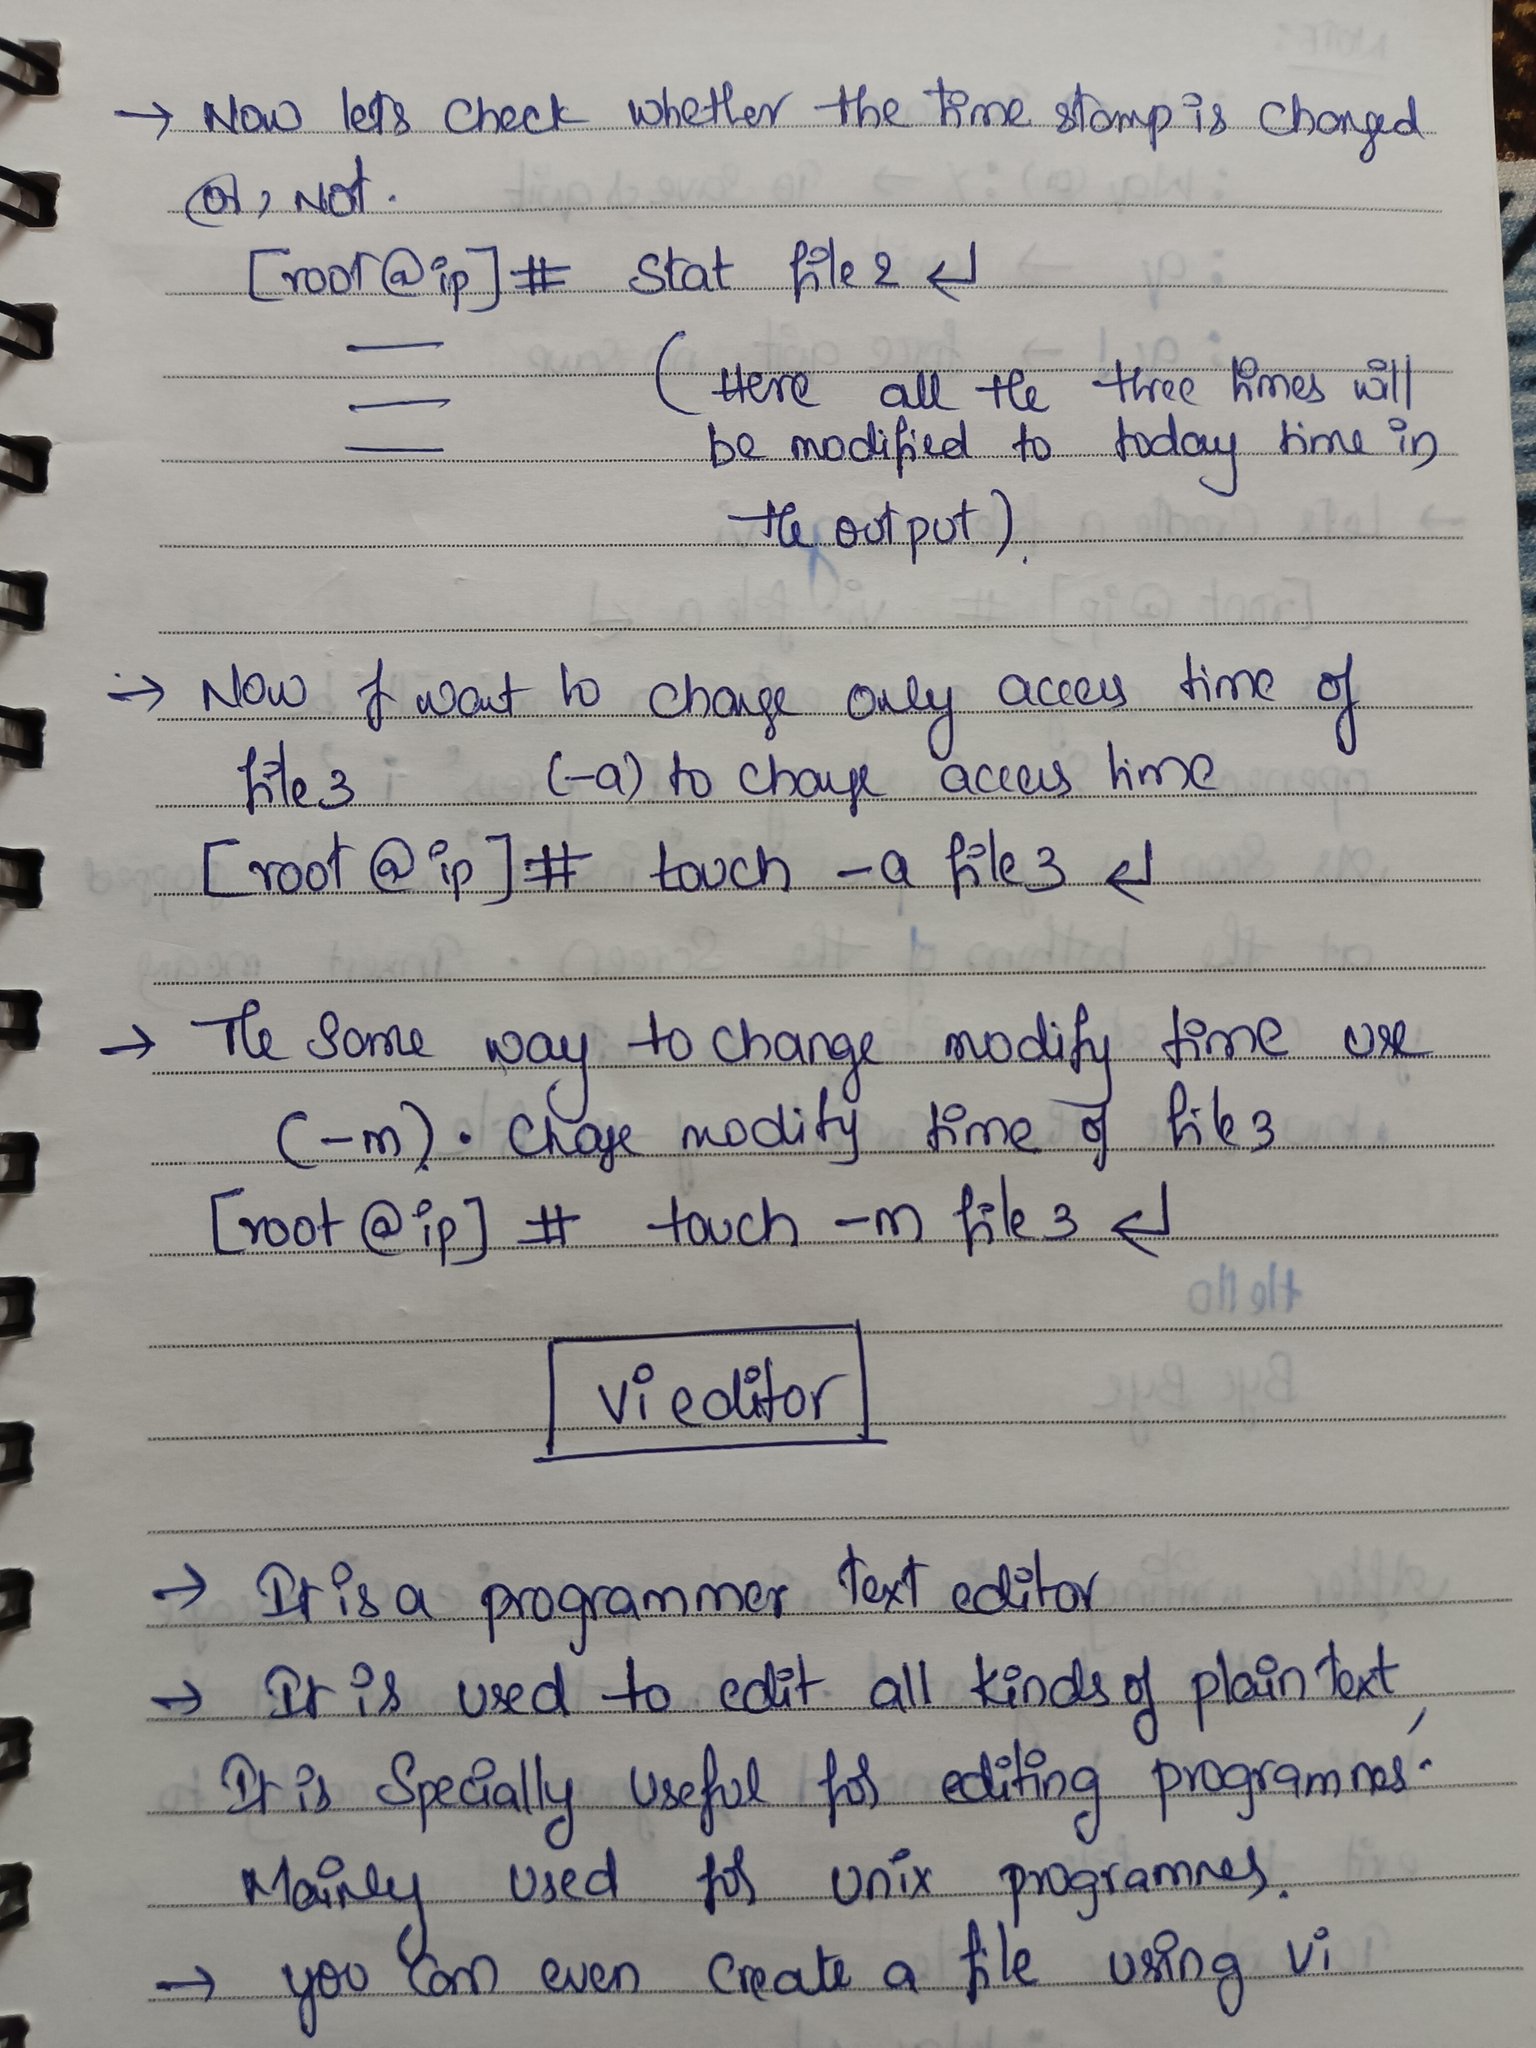 → Now lets check whether the time stamp is changed
or, Not.
[root@ip]# Stat file2 ↵
(Here all the three times will
be modified to today time in
the output).
→ Now I want to change only access time of
file3 (-a) to change access time
[root@ip]# touch -a file3 ↵
→ The same way to change modify time use
(-m). Change modify time of file3
[root@ip] # touch -m file3 ↵
Vi editor
→ It is a programmer text editor
→ It is used to edit all kinds of plain text,
It is Specially useful for editing programmes.
Mainly used for unix programmes.
→ you can even create a file using vi